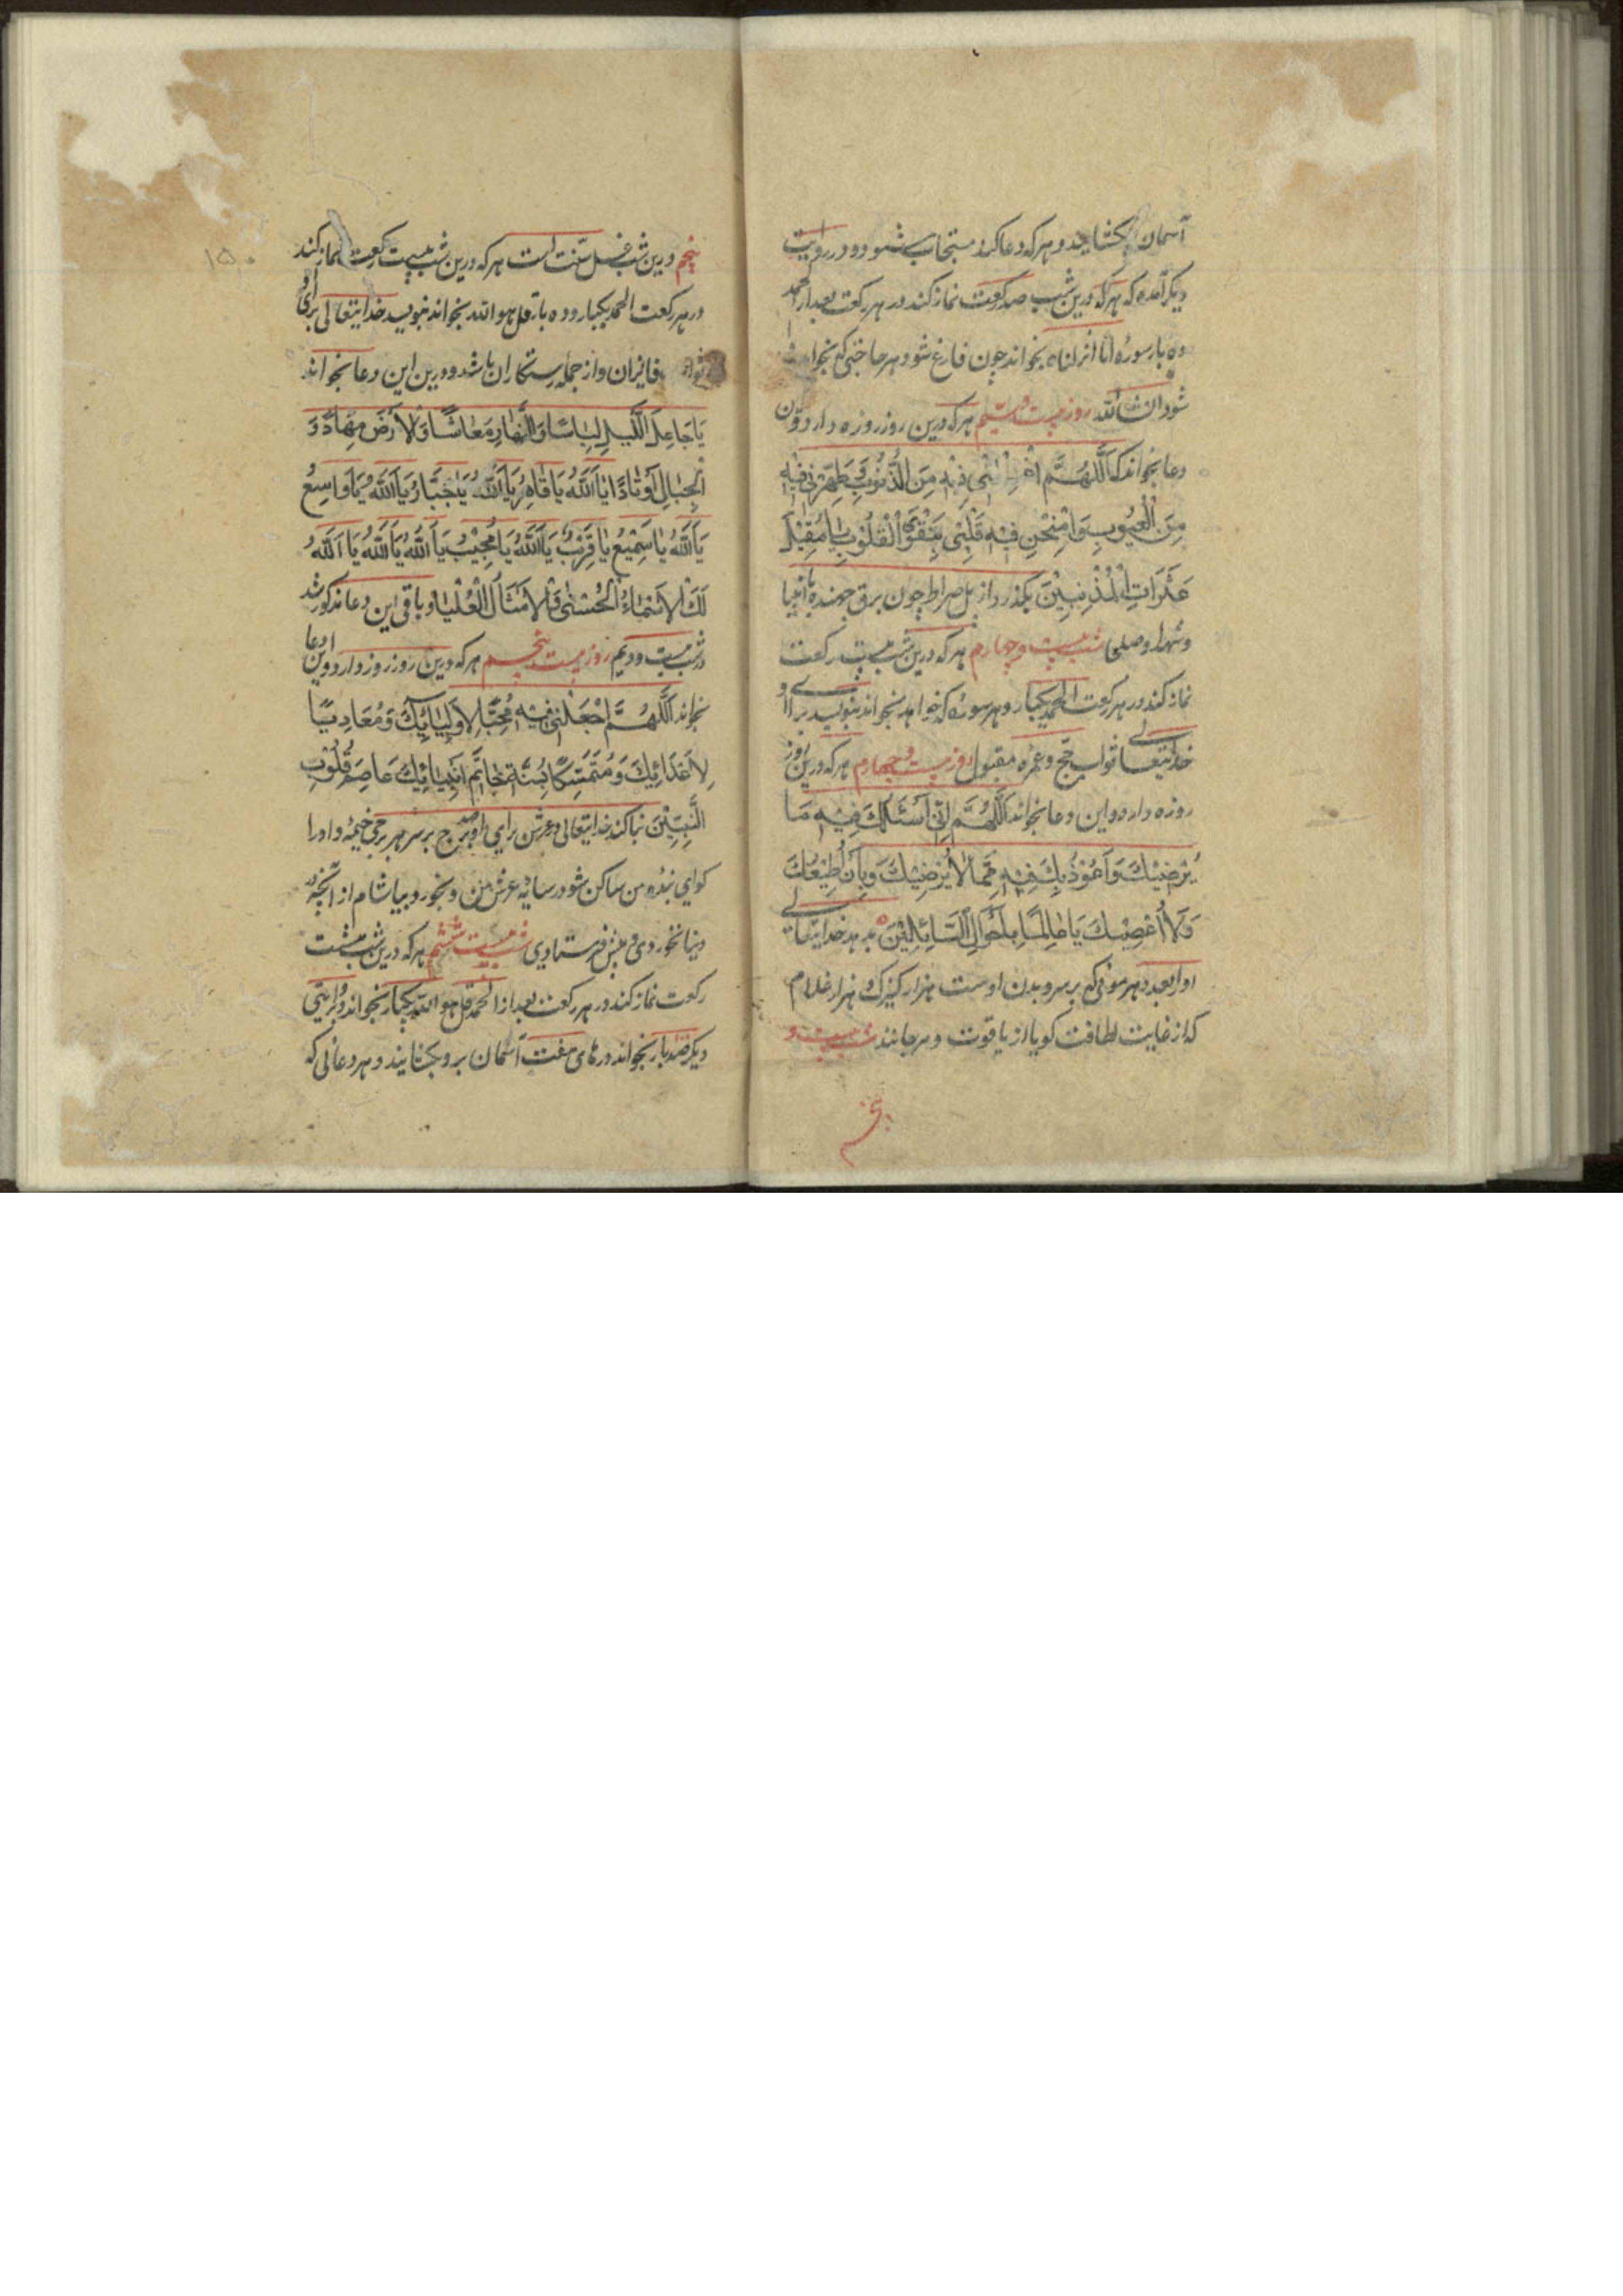 آسمان بکشایند و هر که دعا کند مستجاب شود و در روایت
دیکر آمده که هر که درین شب صد رکعت نماز کند در هر رکعت بعد از الحمد
ده بار سوره انا انزلناه بخواند چون فارغ شود هر حاجتی که بخواهد
شود ان شاء الله روز بیست و سیم هر که درین روز روزه دارد و این
دعا بخواند که اَللّٰهُمَّ اغْسِلْنی فِیْهِ مِنَ الذُّنُوبِ وَطَهِّرْنی فیْهِ
مِنَ الْعُیُوبِ وَامْتَحِنْ فیْهِ قَلْبِیْ بِتَقْوَی الْقُلُوْبِ یَا مُقِیْلَ
عَثَرَاتِ الْمُذْنِبِیْنَ بکذرد از پل صراط چون برق جهنده با انبیا
و شهدا و صلحا شب بیست و چهارم هر که درین شب بیست رکعت
نماز کند در هر رکعت الحمد یکبار و هر سوره که خواهد بخواند بنویسد برای او
خدایتعالی ثواب حج و عمره مقبول روز بیست و چهارم هر که درین روز
روزه دارد و این دعا بخواند اَللّٰهُمَّ اِنّی اَسْئَلُكَ فِیْهِ مَا
یُرْضِیْكَ وَاَعُوْذُ بِكَ فِیْهِ مِمَّا لَا یُرْضِیْكَ وَبِاَنْ اُطِیْعَكَ
وَلَا اُعْصِیْكَ یَا عَالِمًا بِاَحْوَالِ السَّائِلِیْنَ بدهد خدایتعالی
او را بعدد هر موئی که بر سر و بدن اوست هزار کنیزک و هزار غلام
که از غایت لطافت کویا از یاقوت و مرجانند شب بیست و
پنجم
۱۵۰
پنجم درین شب غسل سنّت است هر که درین شب بیست رکعت نماز کند
در هر رکعت الحمد یکبار و ده بار قل هو الله بخواند بنویسد خدایتعالی برای او
ثواب فائزان و از جمله رستکاران باشد و درین این دعا بخواند
یَا جَاعِلَ اللَّیْلِ لِبَاسًا وَالنَّهَارِ مَعَاشًا وَالْاَرْضَ مِهَادًا وَ
الْجِبَالِ اَوْتَادًا یَا اَللّٰهُ یَا قَاهِرُ یَا اَللّٰهُ یَا جَبَّارُ یَا اَللّٰهُ یَا وَاسِعُ
یَا اَللّٰهُ یَا سَمِیْعُ یَا قَرِیْبُ یَا اَللّٰهُ یَا مُجِیْبُ یَا اَللّٰهُ یَا اَللّٰهُ یَا اَللّٰهُ
لَكَ الْاَسْمَاءُ الْحُسْنٰی وَالْاَمْثَالُ الْعُلْیَا و باقی این دعا مذکور شد
در شب بیست و دویم روز بیست پنجم هر که درین روز روزه دارد و این دعا
بخواند اَللّٰهُمَّ اجْعَلْنِی فِیْهِ مُحِبًّا لِاَوْلِیَائِكَ وَمُعَادِیًا
لِاَعْدَائِكَ وَمُتَمَسِّكًا بِسُنَّةِ خَاتَمِ اَنْبِیَائِكَ عَاصِمَ قُلُوْبِ
النَّبِیّیْنَ بنا کند خدایتعالی در عرش برای او صد برج بر سر هر برجی خیمه و او را
کوید ای بنده من ساکن شو در سایه عرش من و بخور و بیاشام از آنچه در
دنیا نخوردی و پیش فرستادی شب بیست ششم هر که درین شب هشت
رکعت نماز کند در هر رکعت بعد از الحمد قل هو الله یکبار بخواند و بروایتی
دیکر صد بار بخواند درهای هفت آسمان برو بکشایند و هر دعائی که